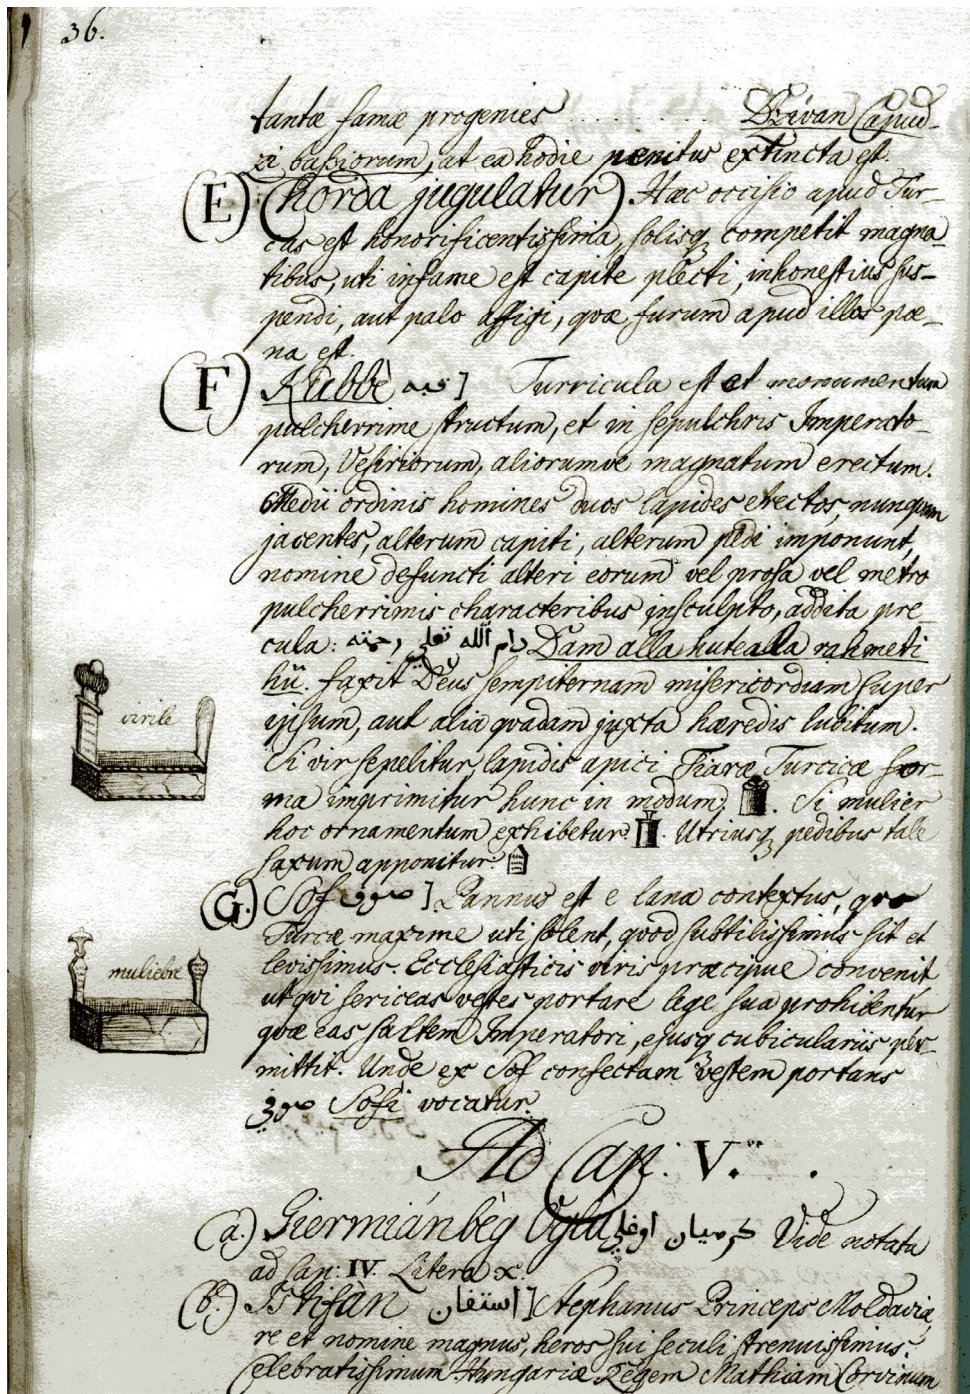 36.
tantæ famæ progenies ............ Dzivan Capud-
zi baßiorum, at ea hodie penitus extincta est.
(E) (Chorda jugulatur). Hæc occisio apud Tur-
cas est honorificentissima, solisq competit magna-
tibus, uti infame est capite plecti, inhonestius sus-
pendi, aut palo affigi, quæ furum apud illos pæ-
na est.
(F) Kubbè قبه ] Turricula est et monumentum
pulcherrime structum, et in sepulchris Imperato-
rum, Vesiriorum, aliorumve magnatum erectum.
Medii ordinis homines duos lapides erectos, nunquam
jacentes, alterum capiti, alterum pedi imponunt,
nomine defuncti alteri eorum vel prosa vel metro
pulcherrimis characteribus insculpto, addita pre-
cula: دام الله تعلي رحمته Dam alla hutealla rahmeti
hü. faxit Deus sempiternam misericordiam super
ipsum, aut alia quadam juxta hæredis lubitum.
Si vir sepelitur, lapidis apici Tiaræ Turcicæ for-
ma imprimitur hunc in modum. Si mulier
hoc ornamentum exhibetur. Utriusq pedibus tale
saxum apponitur.
virile
(G.) Sof صوف ]. Pannus est e lana contextus, quo
Turcæ maxime uti solent, quod subtilissimus sit et
levissimus. Ecclesiasticis viris præcipue convenit
ut qui sericeas vestes portare lege sua prohibentur
quæ eas saltem Imperatori, ejusq cubiculariis per-
mittit. Unde ex Sof confectam vestem portans
صوفي Sofi vocatur.
muliebre
Ad Cap: V.
(a.) Giermiánbèg Oglu كرميان اوغلي Vide notata
ad Cap: IV. Litera x.
(b.) Istifàn استفان ] Stephanus Princeps Moldaviæ,
re et nomine magnus, heros sui seculi strenuissimus.
Celebratissimum Hungariæ Regem Mathiam Corvinum